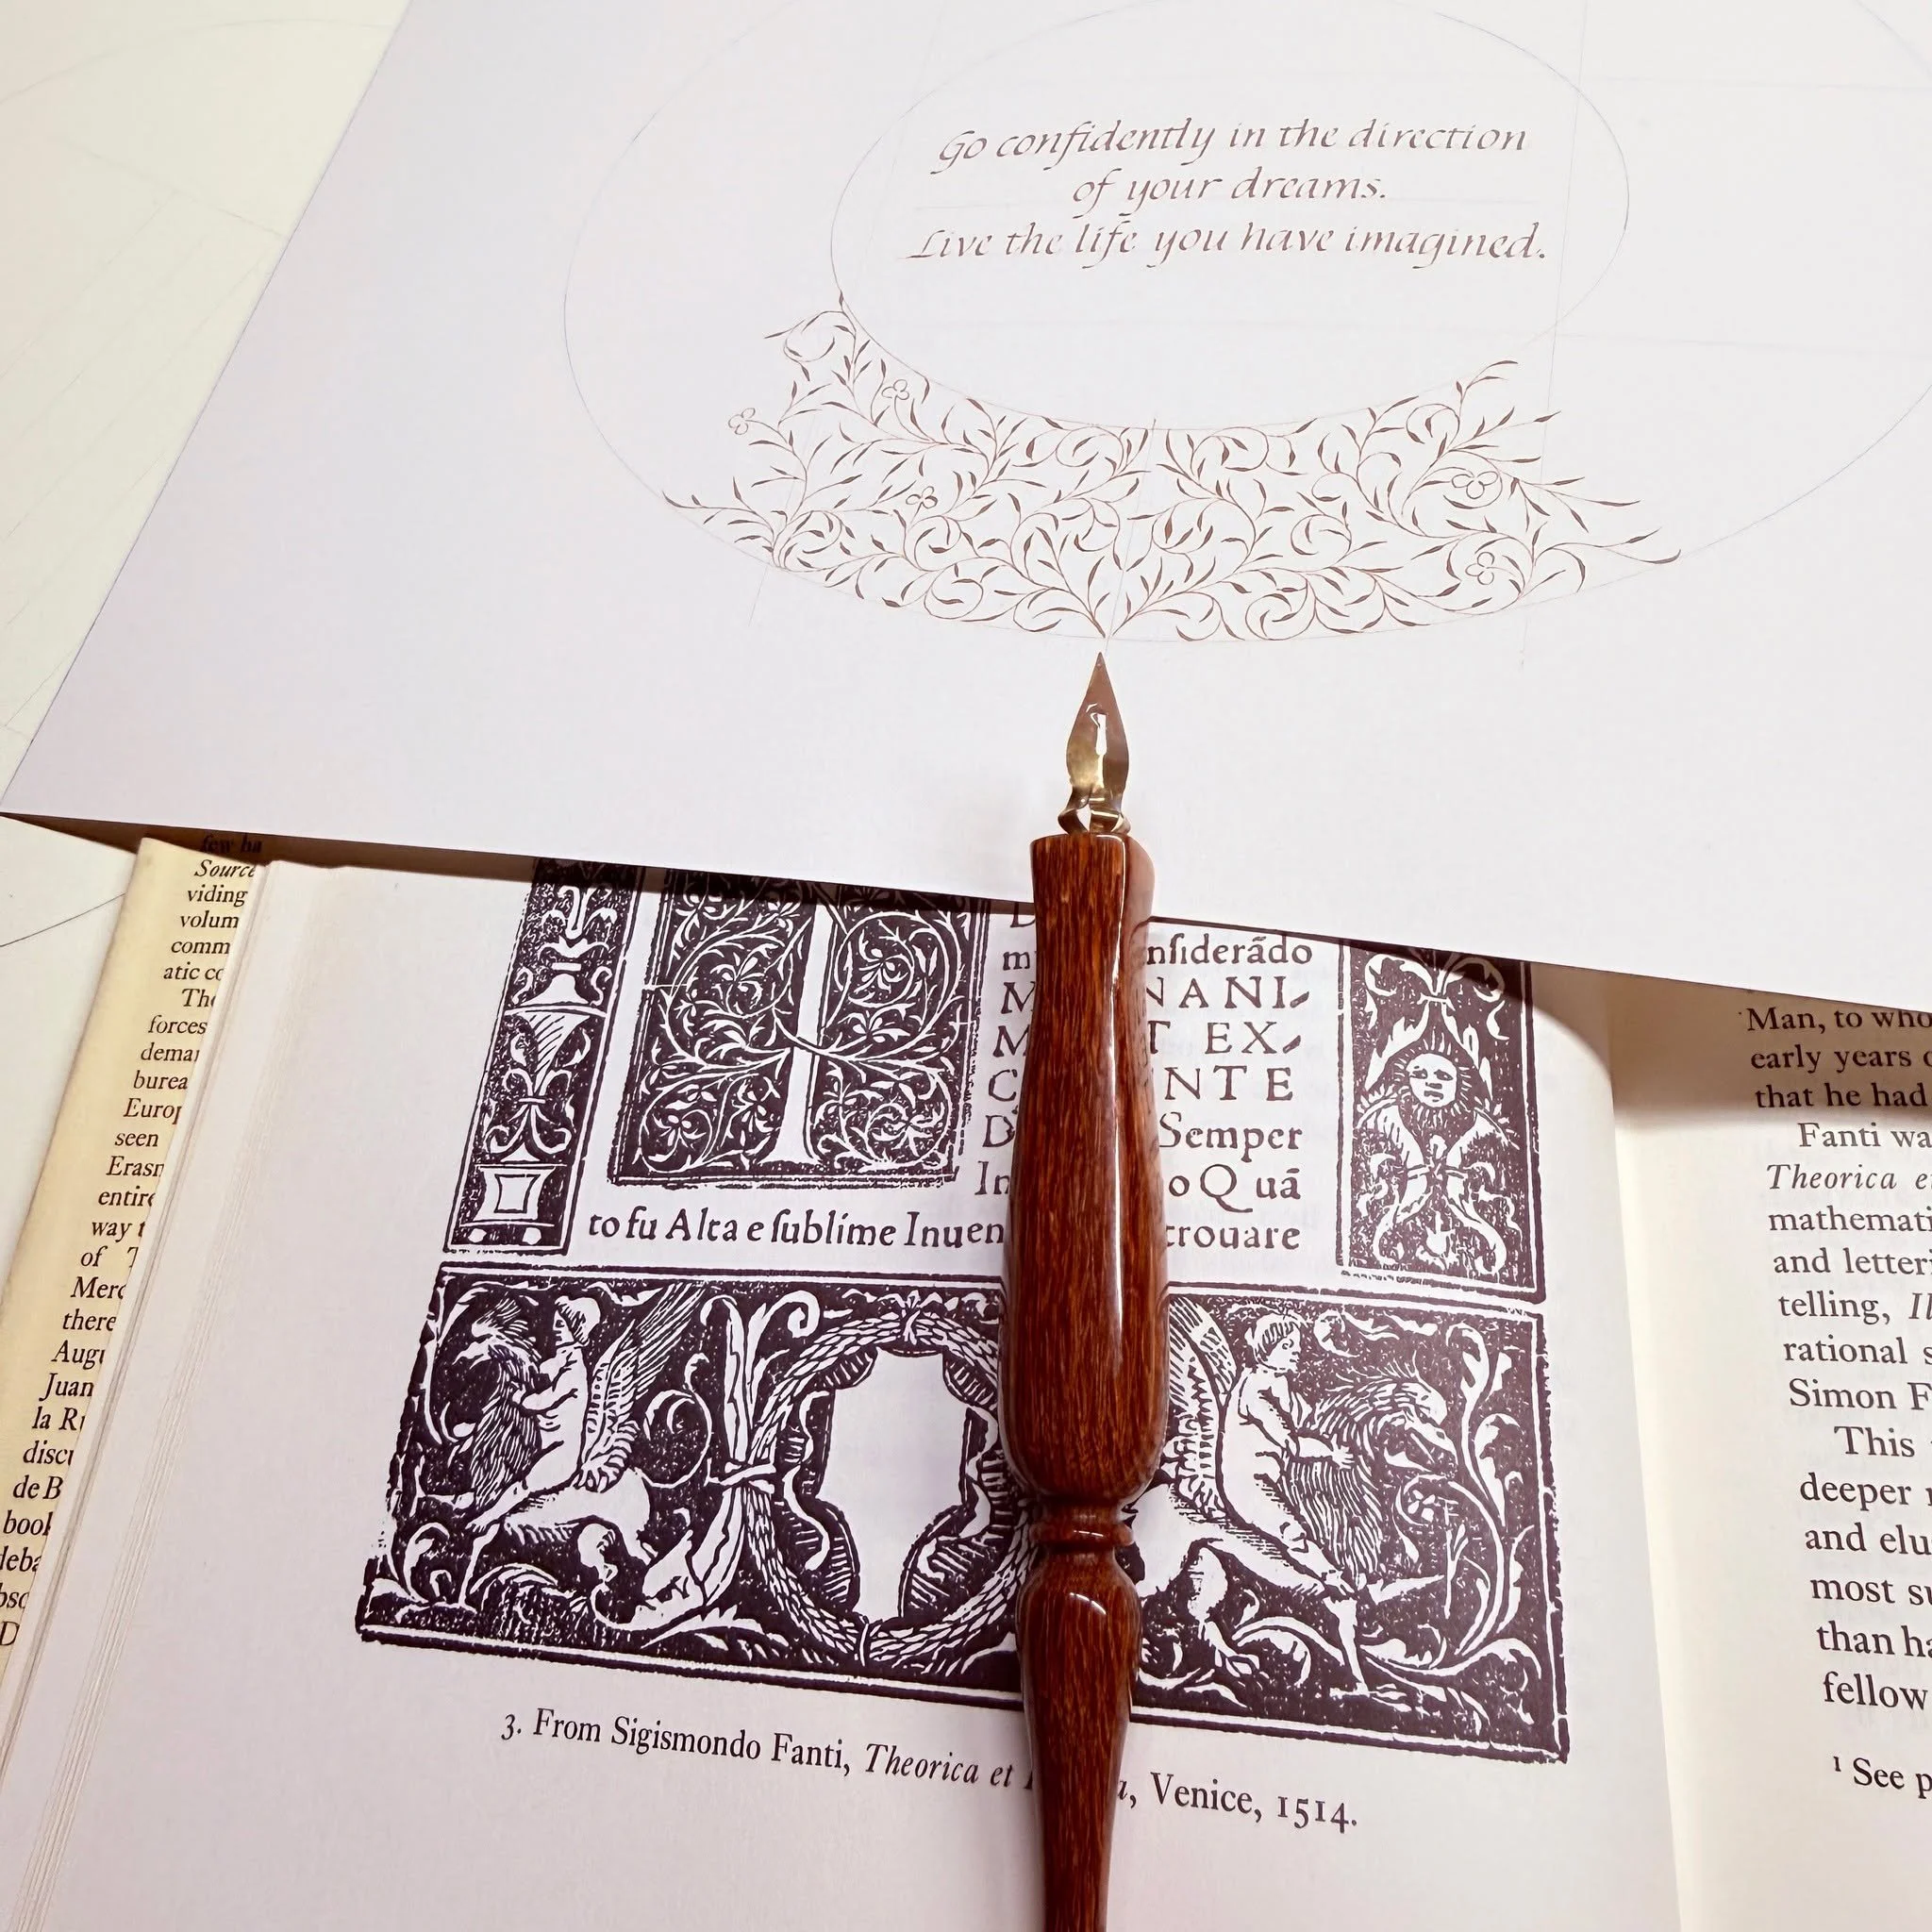 Go confidently in the direction
of your dreams.
Live the life you have imagined.
few ha
Source
viding
volum
comm
atic co
The
forces
deman
burea
Europ
seen
Erasm
entire
way t
of T
Merc
there
Augu
Juan
la Ru
discu
de B
book
deba
bsc
D
nſiderãdo
M NANI
M T EX
C NTE
D Semper
In o Quã
to fu Alta e ſublime Inuen trouare
3. From Sigismondo Fanti, Theorica et a, Venice, 1514.
Man, to who
early years o
that he had
Fanti wa
Theorica et
mathemati
and letteri
telling, Il
rational s
Simon F
This
deeper
and elu
most su
than ha
fellow
¹ See p